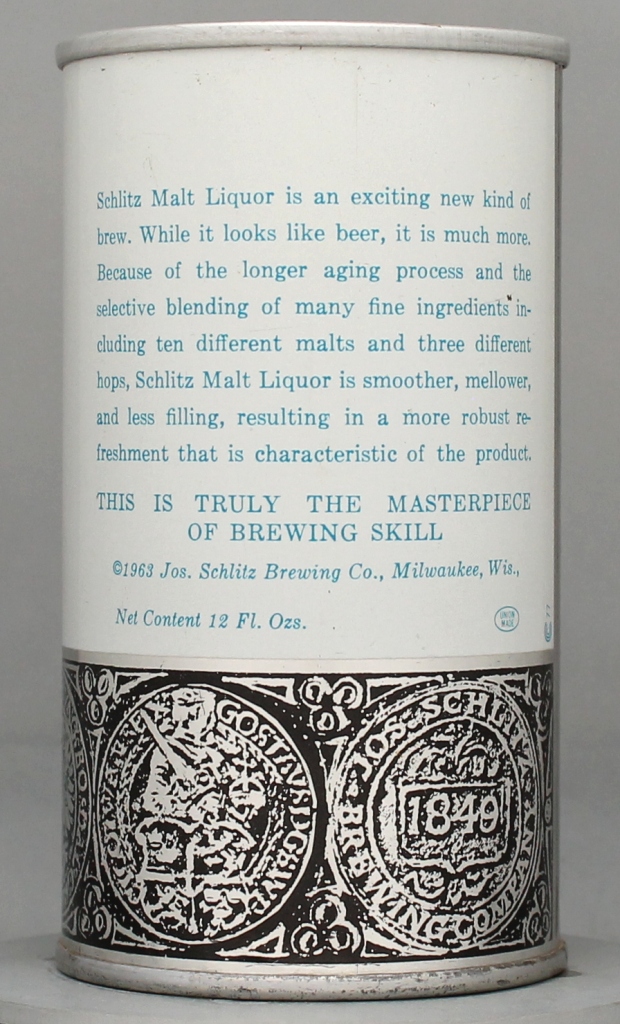 Schlitz Malt Liquor is an exciting new kind of
brew. While it looks like beer, it is much more.
Because of the longer aging process and the
selective blending of many fine ingredients in-
cluding ten different malts and three different
hops, Schlitz Malt Liquor is smoother, mellower,
and less filling, resulting in a more robust re-
freshment that is characteristic of the product.
THIS IS TRULY THE MASTERPIECE
OF BREWING SKILL
©1963 Jos. Schlitz Brewing Co., Milwaukee, Wis.,
Net Content 12 Fl. Ozs.
UNION
MADE
77
JOS. SCHLITZ
BREWING COMPANY
1849